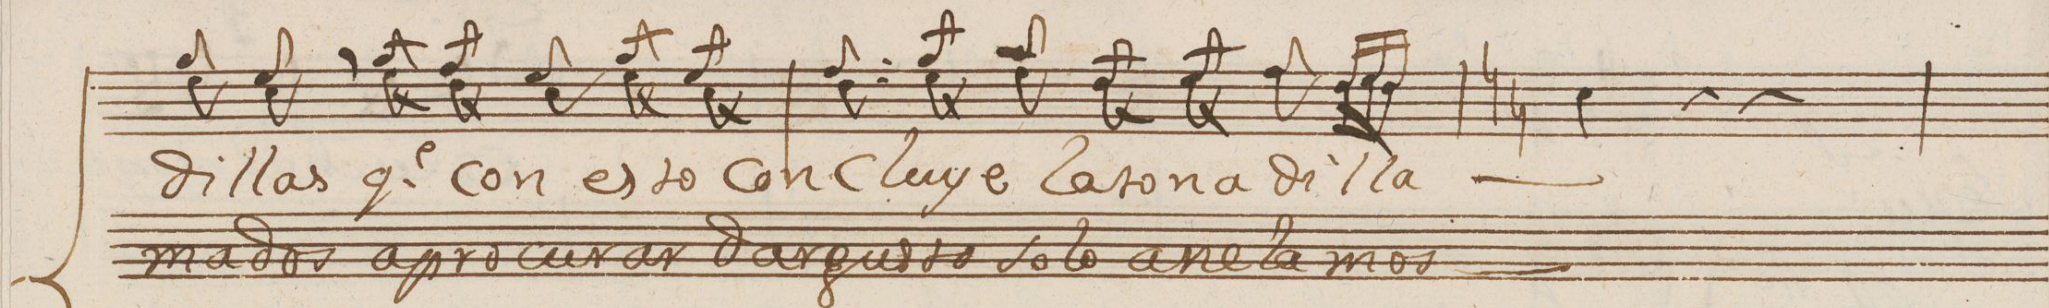 dillas q.e con esto Concluye la tona dilla
mados aprocurar dar gusto solo anelamos